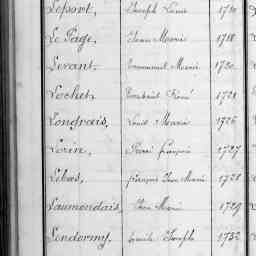 Leport, Joseph Louis 1710
Le Page, Jean Marie 1718
Levant, Emmanuel Marie 1720
Lochet, René 1721
Longrais, Louis Marie 1726
Lorin, René françois 1727
Lebas, françois Jean Marie 1728
Laumondais, Marie 1729
Lendormy, Joseph 1732